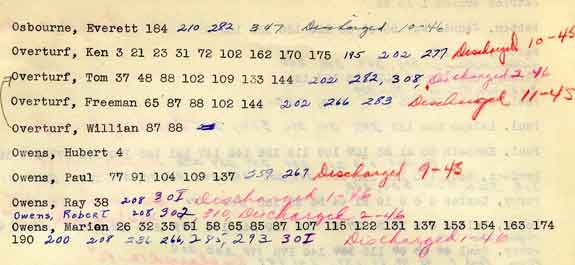 Osbourne, Everett 184 210 282 347 Discharged 10-46
Overturf, Ken 3 21 23 31 72 102 162 170 175 195 202 277 Discharged 10-45
Overturf, Tom 37 48 88 102 109 133 144 202 282, 308, Discharged 2-46
Overturf, Freeman 65 87 88 102 144 202 266 283 Discharged 11-45
Overturf, Willian 87 88
Owens, Hubert 4
Owens, Paul 77 91 104 109 137 259 267 Discharged 9-45
Owens, Ray 38 208 301 Discharged 1-46
Owens, Robert 208 302 310, Discharged 2-46
Owens, Marion 26 32 35 51 58 65 85 87 107 115 122 131 137 153 154 163 174
190 200 208 236 266, 285, 293 301 Discharged 1-46